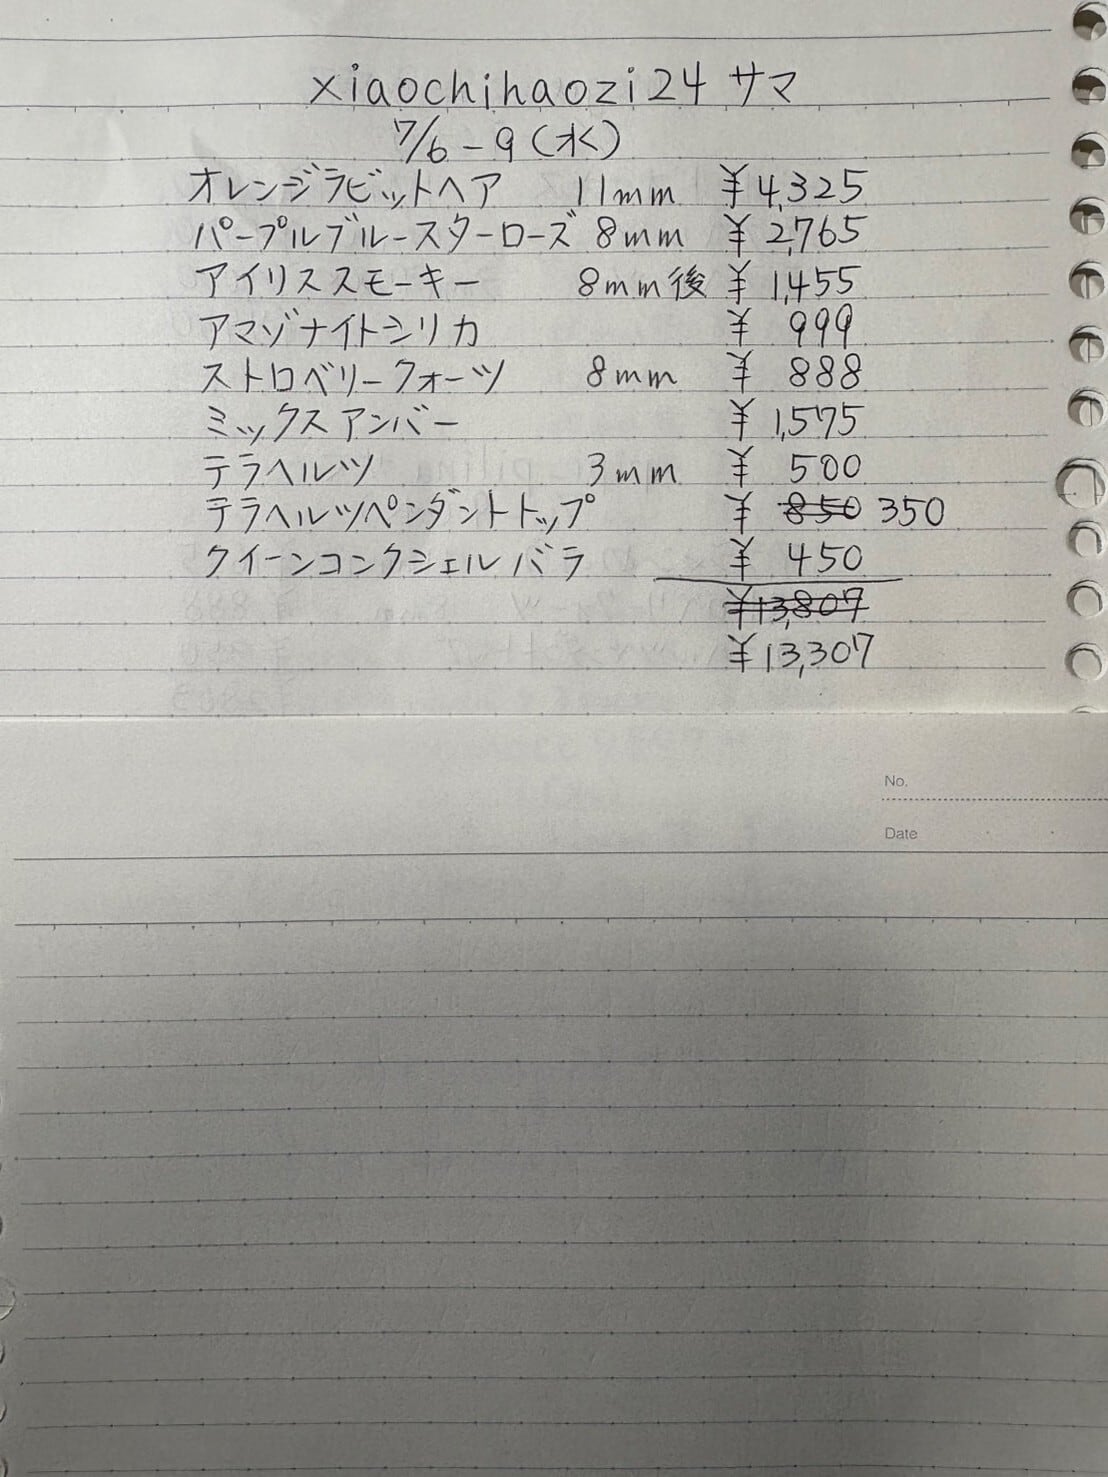 xiaochihaozi24 サマ
7/6-9(水)
オレンジラビットヘア 11mm ¥4,325
パープルブルースターローズ 8mm ¥2,765
アイリススモーキー 8mm後 ¥1,455
アマゾナイトシリカ ¥999
ストロベリークォーツ 8mm ¥888
ミックスアンバー ¥1,575
テラヘルツ 3mm ¥500
テラヘルツペンダントトップ ¥850 350
クイーンコンクシェルバラ ¥450
¥13,807
¥13,307
No.
Date